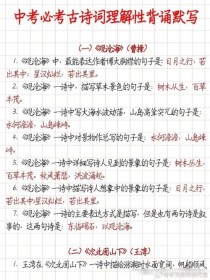 中考必考古诗词理解性背诵默写
(一)《观沧海》(曹操)
1.《观沧海》中,最能表达作者博大胸襟的句子是:日月之行,若
出其中,星汉灿烂,若出其里。
2.《观沧海》一诗中,描写草木景色的句子是:树木丛生,百草
丰茂。
3.《观沧海》一诗中写大海水波动荡,山岛高耸突兀的句子是:
水何澹澹,山岛竦峙。
4.《观沧海》一诗中对景物作总写的句子是:水何澹澹,山岛竦
峙。
5.《观沧海》一诗中详细写诗人见到的景象的句子是:树木丛生,
百草丰茂。秋风萧瑟,洪波涌起。
6.《观沧海》一诗中描写诗人想象中的景象的句子是:日月之行,
若出其中;星汉灿烂,若出其里。
7.《观沧海》一诗的主要表达方式是描写,但是也有两句诗是叙
事的,这两句诗是:东临碣石,以观沧海。
(二)《次北固山下》(王湾)
1.王湾在《次北固山下》一诗中描绘潮